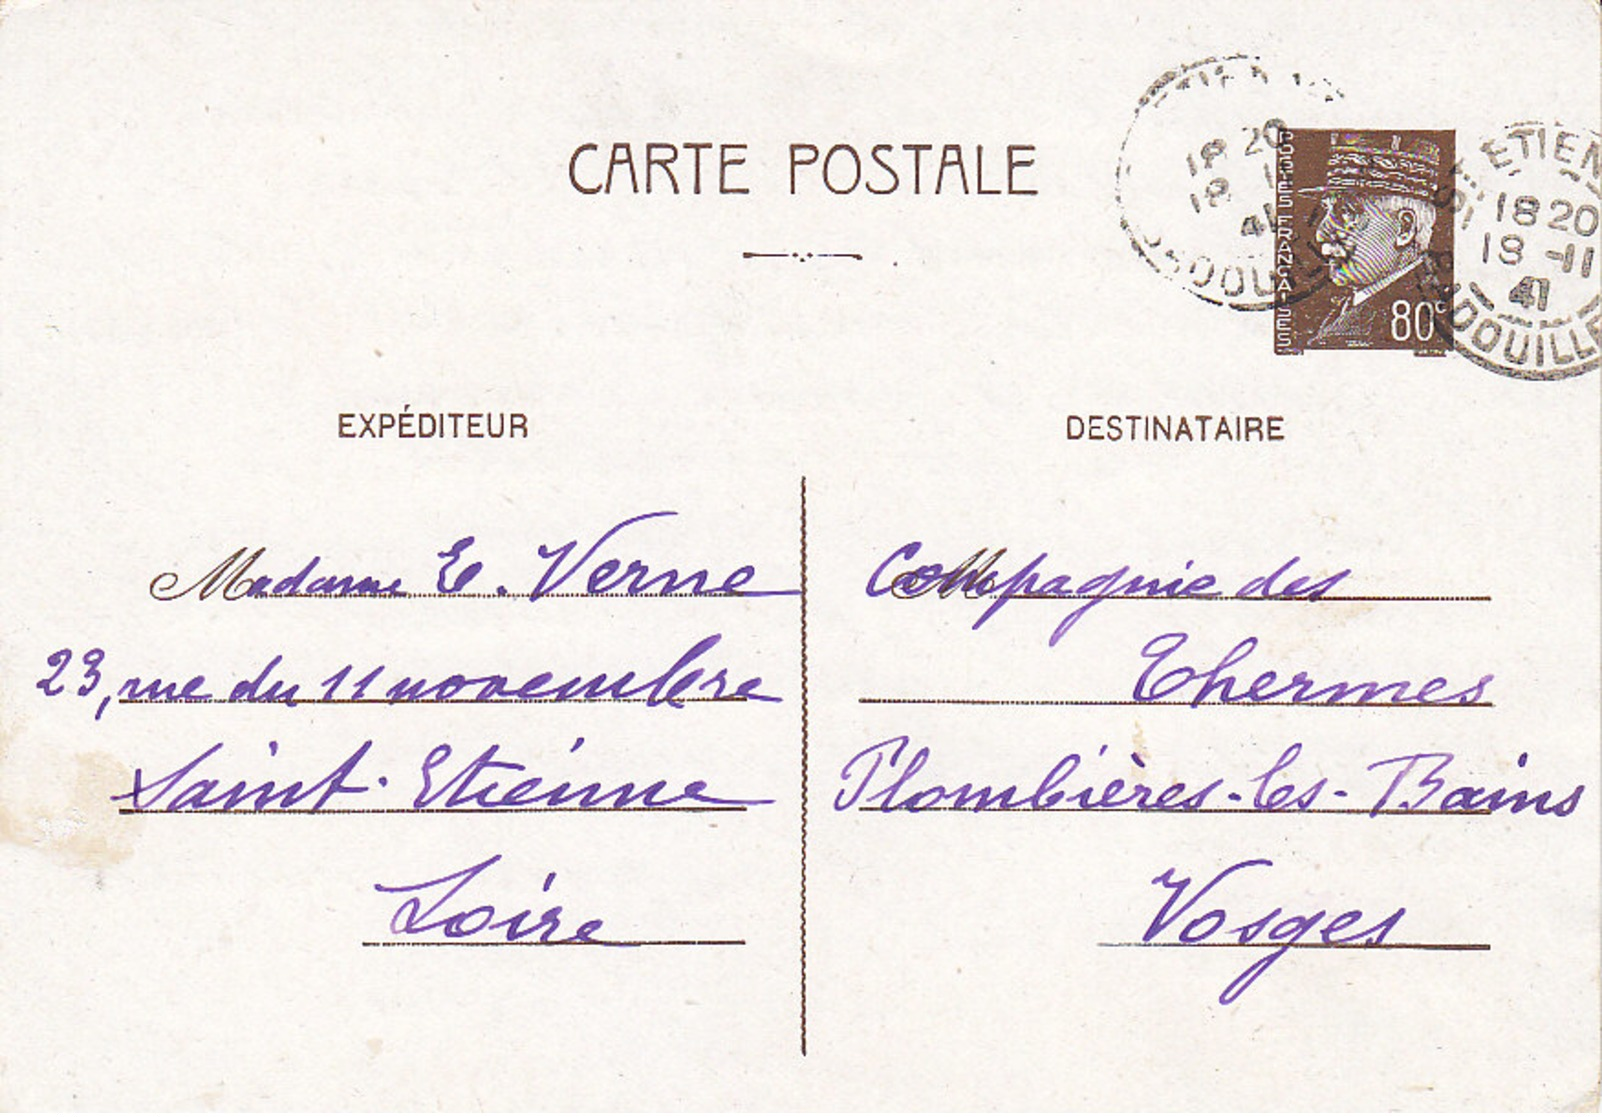 CARTE POSTALE
POSTES FRANÇAISES
80c
18 20
18
41
ST ETIEN
18 20
18 -11
41
BADOUILLE
EXPÉDITEUR
Madame E. Verne
23, rue du 11 novembre
Saint-Etienne
Loire
DESTINATAIRE
Compagnie des
Thermes
Plombières-les-Bains
Vosges